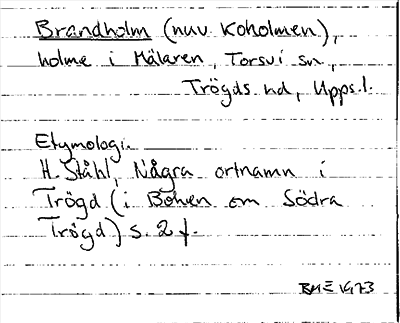 Brandholm (nuv. Koholmen),
holme i Mälaren, Torsvi sn,
Trögds hd, Upps. l.
Etymologi.
H. Ståhl, Några ortnamn i
Trögd (i Boken om Södra
Trögd) s. 2 f.
1973